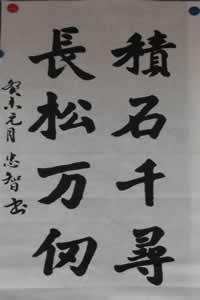 積石千尋
長松万仞
癸未元月 忠智書